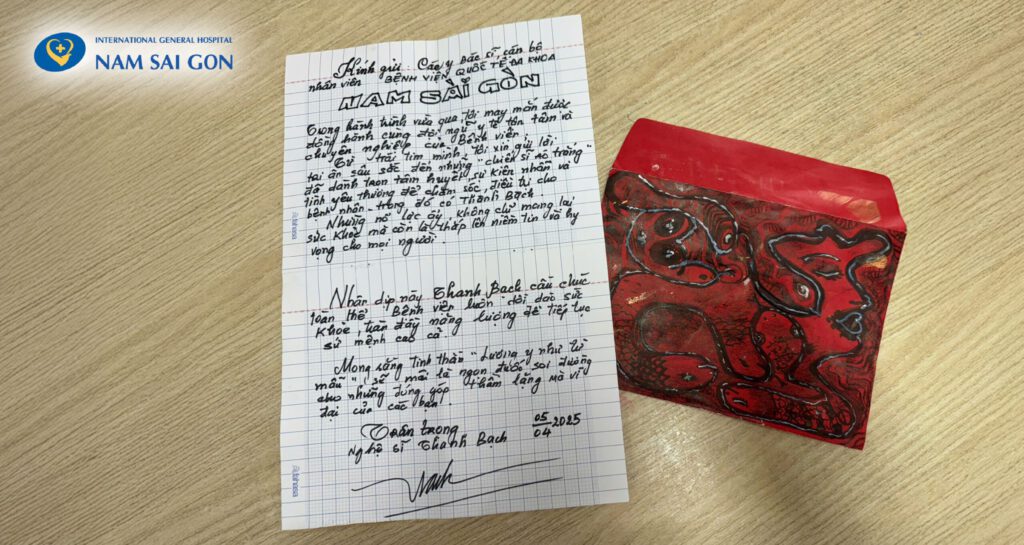 INTERNATIONAL GENERAL HOSPITAL
NAM SAI GON
Kính gửi : Các y Bác sĩ, cán bộ
nhân viên BỆNH VIỆN QUỐC TẾ ĐA KHOA
NAM SÀI GÒN
Trong hành trình vừa qua, tôi may mắn được
đồng hành cùng đội ngũ y tế tận tâm và
chuyên nghiệp của Bệnh viện.
Từ trái tim mình, tôi xin gửi lời
tri ân sâu sắc đến những "chiến sĩ áo trắng"
đã dành trọn tâm huyết, sự kiên nhẫn và
tình yêu thương để chăm sóc, điều trị cho
bệnh nhân - trong đó có Thanh Bạch.
Những nỗ lực ấy không chỉ mang lại
sức khỏe mà còn là thắp lên niềm tin và hy
vọng cho mọi người.
Nhân dịp này Thanh Bạch cầu chúc
toàn thể Bệnh viện luôn dồi dào sức
khỏe, tràn đầy năng lượng để tiếp tục
sứ mệnh cao cả.
Mong rằng tinh thần "Lương y như từ
mẫu", sẽ mãi là ngọn đuốc soi đường
cho những đóng góp thầm lặng mà vĩ
đại của các bạn.
Trân trọng 05/04 2025
Nghệ sĩ Thanh Bạch